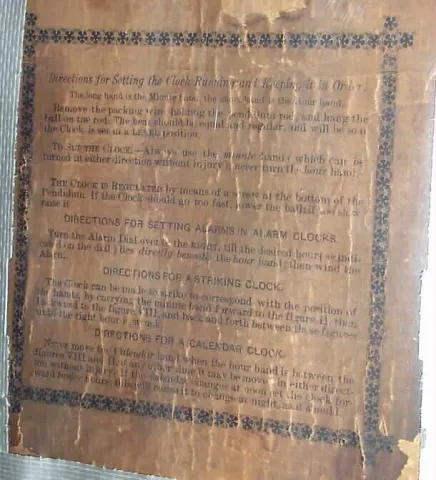 Directions for Setting the Clock Running and Keeping it in Order.
The long hand is the Minute hand, the short hand is the Hour hand.
Remove the packing wire holding the pendulum rod, and hang the
ball on the rod. The beat should be equal and regular, and will be so if
the Clock is set in a LEVEL position.
TO SET THE CLOCK.—Always use the minute hand (which can be
turned in either direction without injury), never turn the hour hand.
THE CLOCK IS REGULATED by means of a screw at the bottom of the
Pendulum. If the Clock should go too fast, lower the ball; if too slow,
raise it
DIRECTIONS FOR SETTING ALARMS IN ALARM CLOCKS.
Turn the Alarm Dial over to the right, till the desired hour, as indi-
cated on the dial, lies directly beneath the hour hand; then wind the
Alarm.
DIRECTIONS FOR A STRIKING CLOCK.
The Clock can be made to strike to correspond with the position of
the hands, by carrying the minute hand forward to the figure
backward to the figure VIII, and back and forth between these figures
until the right hour is struck.
DIRECTIONS FOR A CALENDAR CLOCK.
Never move the Calendar hand when the hour hand is between the
figures VIII and at any other time it may be moved in either direct-
ion without injury. If the calendar changes at noon set the clock for-
ward twelve hours, this will cause it to change at night, as it should.